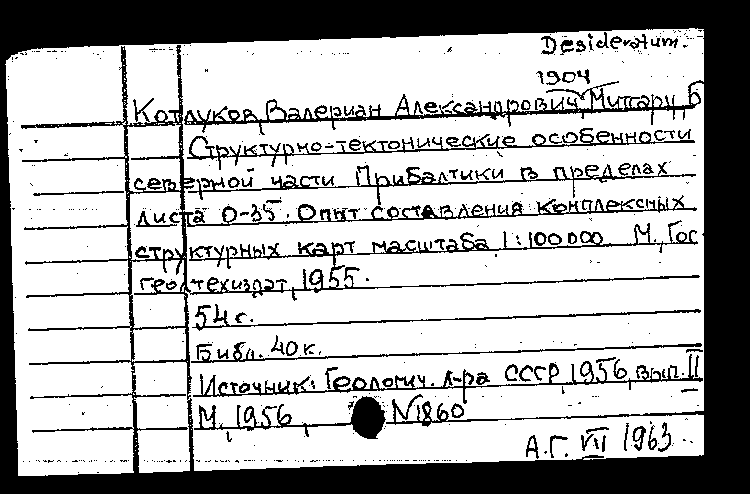 Desideratum.
1904
Котлуков, Валериан Александрович, Митгарц, Б
Структурно-тектонические особенности
северной части Прибалтики в пределах
листа О-35. Опыт составления комплексных
структурных карт масштаба 1:100000 М., Гос
геолтехиздат, 1955.
54 с.
Библ. 40 к.
Источник: Геологич. л-ра СССР, 1956, вып. II
М., 1956, N1860
А.Г. VII 1963